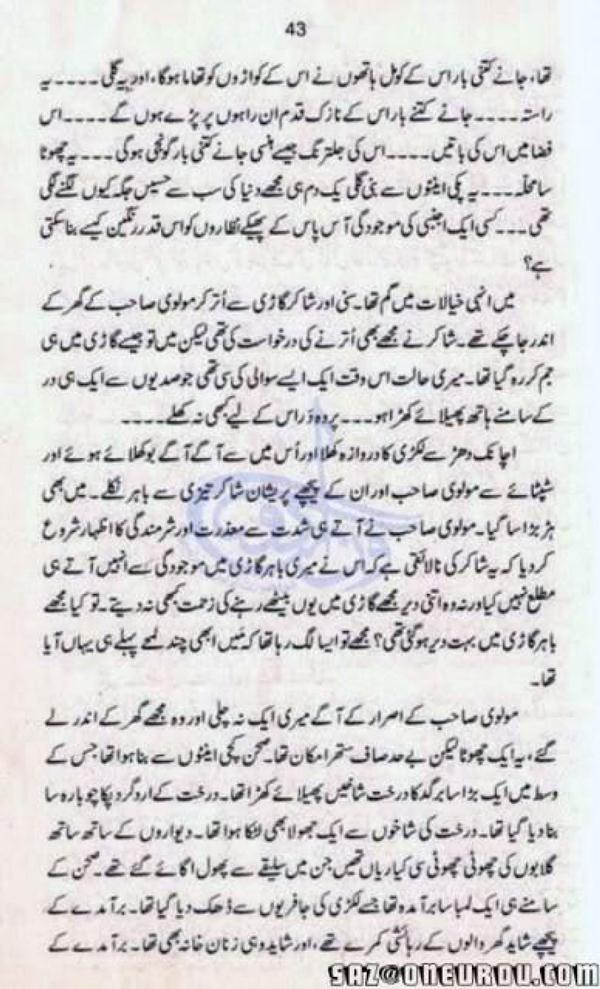 43
تھا، جانے کتنی بار اس کے کومل ہاتھوں نے اس کے کواڑوں کو تھاما ہوگا، اور یہ گلی ۔۔۔۔ یہ
راستہ ۔۔۔۔ جانے کتنے بار اس کے نازک قدم ان راہوں پر پڑے ہوں گے ۔۔۔۔ اس
فضا میں اس کی باتیں ۔۔۔۔ اس کی جلترنگ جیسے ہنسی جانے کتنی بار گونجی ہوگی ۔۔۔۔ یہ چھوٹا
سا محلہ ۔۔۔ یہ پکی اینٹوں سے بنی گلی یک دم ہی مجھے دنیا کی سب سے حسین جگہ کیوں لگنے لگی
تھی ۔۔۔ کسی ایک اجنبی کی موجودگی آس پاس کے پھیکے نظاروں کو اس قدر رنگین کیسے بنا سکتی
ہے؟
میں انہی خیالات میں گم تھا۔ سنی اور شاکر گاڑی سے اُتر کر مولوی صاحب کے گھر کے
اندر جا چکے تھے۔ شاکر نے مجھے بھی اُترنے کی درخواست کی تھی لیکن میں تو جیسے گاڑی میں ہی
جم کر رہ گیا تھا۔ میری حالت اس وقت ایک ایسے سوالی کی سی تھی جو صدیوں سے ایک ہی در
کے سامنے ہاتھ پھیلائے کھڑا ہو ۔۔۔ پر وہ دَر اس کے لیے کبھی نہ کھلے ۔۔۔۔
اچانک دھڑ سے لکڑی کا دروازہ کھلا اور اُس میں سے آگے آگے بوکھلائے ہوئے اور
سٹپٹائے سے مولوی صاحب اور ان کے پیچھے پریشان شاکر تیزی سے باہر نکلے۔ میں بھی
ہڑبڑا سا گیا۔ مولوی صاحب نے آتے ہی شدت سے معذرت اور شرمندگی کا اظہار شروع
کر دیا کہ یہ شاکر کی نالائقی ہے کہ اس نے میری باہر گاڑی میں موجودگی سے انہیں آتے ہی
مطلع نہیں کیا ورنہ وہ اتنی دیر مجھے گاڑی میں یوں بیٹھے رہنے کی زحمت کبھی نہ دیتے۔ تو کیا مجھے
باہر گاڑی میں بہت دیر ہو گئی تھی؟ مجھے تو ایسا لگ رہا تھا کہ میں ابھی چند لمحے پہلے ہی یہاں آیا
تھا۔
مولوی صاحب کے اصرار کے آگے میری ایک نہ چلی اور وہ مجھے گھر کے اندر لے
گئے، یہ ایک چھوٹا لیکن بے حد صاف ستھرا مکان تھا۔ صحن کچی اینٹوں سے بنا ہوا تھا جس کے
وسط میں ایک بڑا سا برگد کا درخت شاخیں پھیلائے کھڑا تھا۔ درخت کے اردگرد پکا چوبارہ سا
بنا دیا گیا تھا۔ درخت کی شاخوں سے ایک جھولا بھی لٹکا ہوا تھا۔ دیواروں کے ساتھ ساتھ
گلابوں کی چھوٹی چھوٹی سی کیاریاں تھیں جن میں سلیقے سے پھول اگائے گئے تھے۔ صحن کے
سامنے ہی ایک لمبا سا برآمدہ تھا جسے لکڑی کی جافریوں سے ڈھک دیا گیا تھا۔ برآمدے کے
پیچھے شاید گھر والوں کے رہائشی کمرے تھے، اور شاید وہی زنان خانہ بھی تھا۔ برآمدے کے
SAZ@ONEURDU.COM